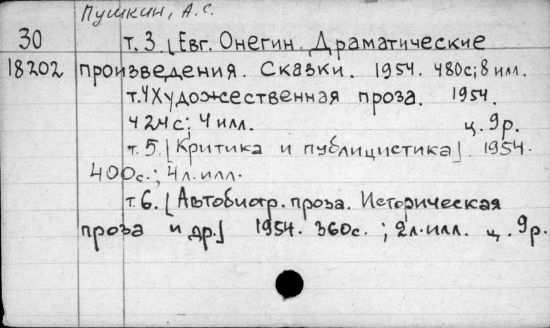 Пушкин, А.С.
30 т. 3. [Евг. Онегин. Драматические
18202 произведения. Сказки. 1954. 480с; 8 илл.
т.4 Художественная проза. 1954.
424с; 4 илл. ц. 9р.
т. 5. [Критика и публицистика]. 1954.
400с.; 4л. илл.
т. 6. [Автобиогр. проза. Историческая
проза и др.] 1954. 360с. ; 2л. илл. ц. 9р.